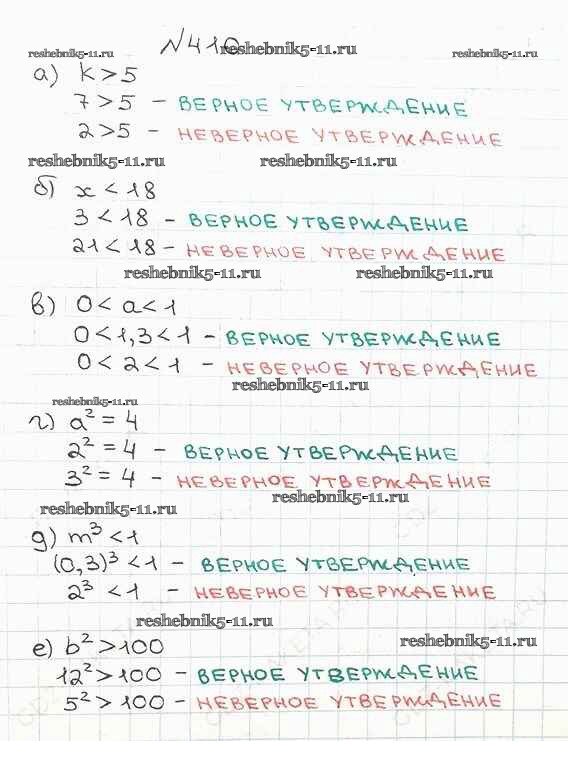 №410
reshebnik5-11.ru reshebnik5-11.ru reshebnik5-11.ru
а) k > 5
7 > 5 - ВЕРНОЕ УТВЕРЖДЕНИЕ
2 > 5 - НЕВЕРНОЕ УТВЕРЖДЕНИЕ
reshebnik5-11.ru reshebnik5-11.ru
б) x < 18
3 < 18 - ВЕРНОЕ УТВЕРЖДЕНИЕ
21 < 18 - НЕВЕРНОЕ УТВЕРЖДЕНИЕ
reshebnik5-11.ru reshebnik5-11.ru
в) 0 < a < 1
0 < 1,3 < 1 - ВЕРНОЕ УТВЕРЖДЕНИЕ
0 < 2 < 1 - НЕВЕРНОЕ УТВЕРЖДЕНИЕ
reshebnik5-11.ru
reshebnik5-11.ru
г) a² = 4
2² = 4 - ВЕРНОЕ УТВЕРЖДЕНИЕ
3² = 4 - НЕВЕРНОЕ УТВЕРЖДЕНИЕ
reshebnik5-11.ru reshebnik5-11.ru
д) m³ < 1
(0,3)³ < 1 - ВЕРНОЕ УТВЕРЖДЕНИЕ
2³ < 1 - НЕВЕРНОЕ УТВЕРЖДЕНИЕ
reshebnik5-11.ru reshebnik5-11.ru
е) b² > 100
12² > 100 - ВЕРНОЕ УТВЕРЖДЕНИЕ
5² > 100 - НЕВЕРНОЕ УТВЕРЖДЕНИЕ